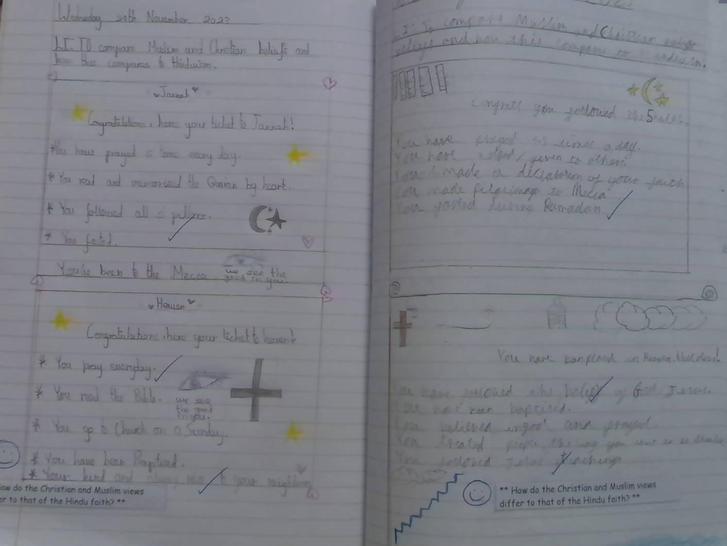 Wednesday 29th November 2023
LI: TO compare Muslim and Christian beliefs and
how this compares to Hinduism.
Jannah
Congratulations, heres your ticket to Jannah!
*You have prayed 5 times every day.
* You read and memorised the Quran by heart.
* You followed all 5 pillars.
* You fasted.
You've been to the Mecca
we see the
good in you.
Heaven
Congratulations, heres your ticket to heaven!
* You pray everyday.
* You read the Bible.
we see
the good
in you.
* You go to Church on a Sunday.
* You have been Baptised.
* Your kind and always to your neighbour
How do the Christian and Muslim views
er to that of the Hindu faith? **
LI: To compare Muslim and Christian
and how this compares to Hinduism.
Congrats you followed the 5
You have prayed 5 times a day.
You have given to others
You made a declaration of your faith
You made pilgrimage to Mecca
You fasted during Ramadan
You have been placed in Heaven
You have followed the of God, Jesus.
You have been baptised.
You believed in god and prayed.
You treated people the way you want to be
You followed Jesus teachings
** How do the Christian and Muslim views
differ to that of the Hindu faith? **